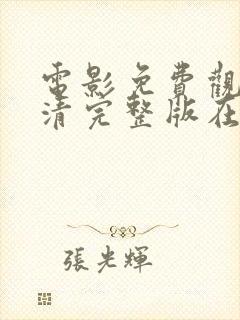 電影免費觀
清完整版在
張光輝